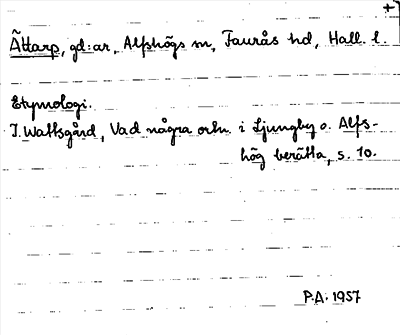 +
Ättarp, gd:ar, Alfshögs sn, Faurås hd, Hall. l.
Etymologi.
I. Wallsgård, Vad några ortn. i Ljungby o. Alfs-
hög berätta, s. 10.
P.A. 1957